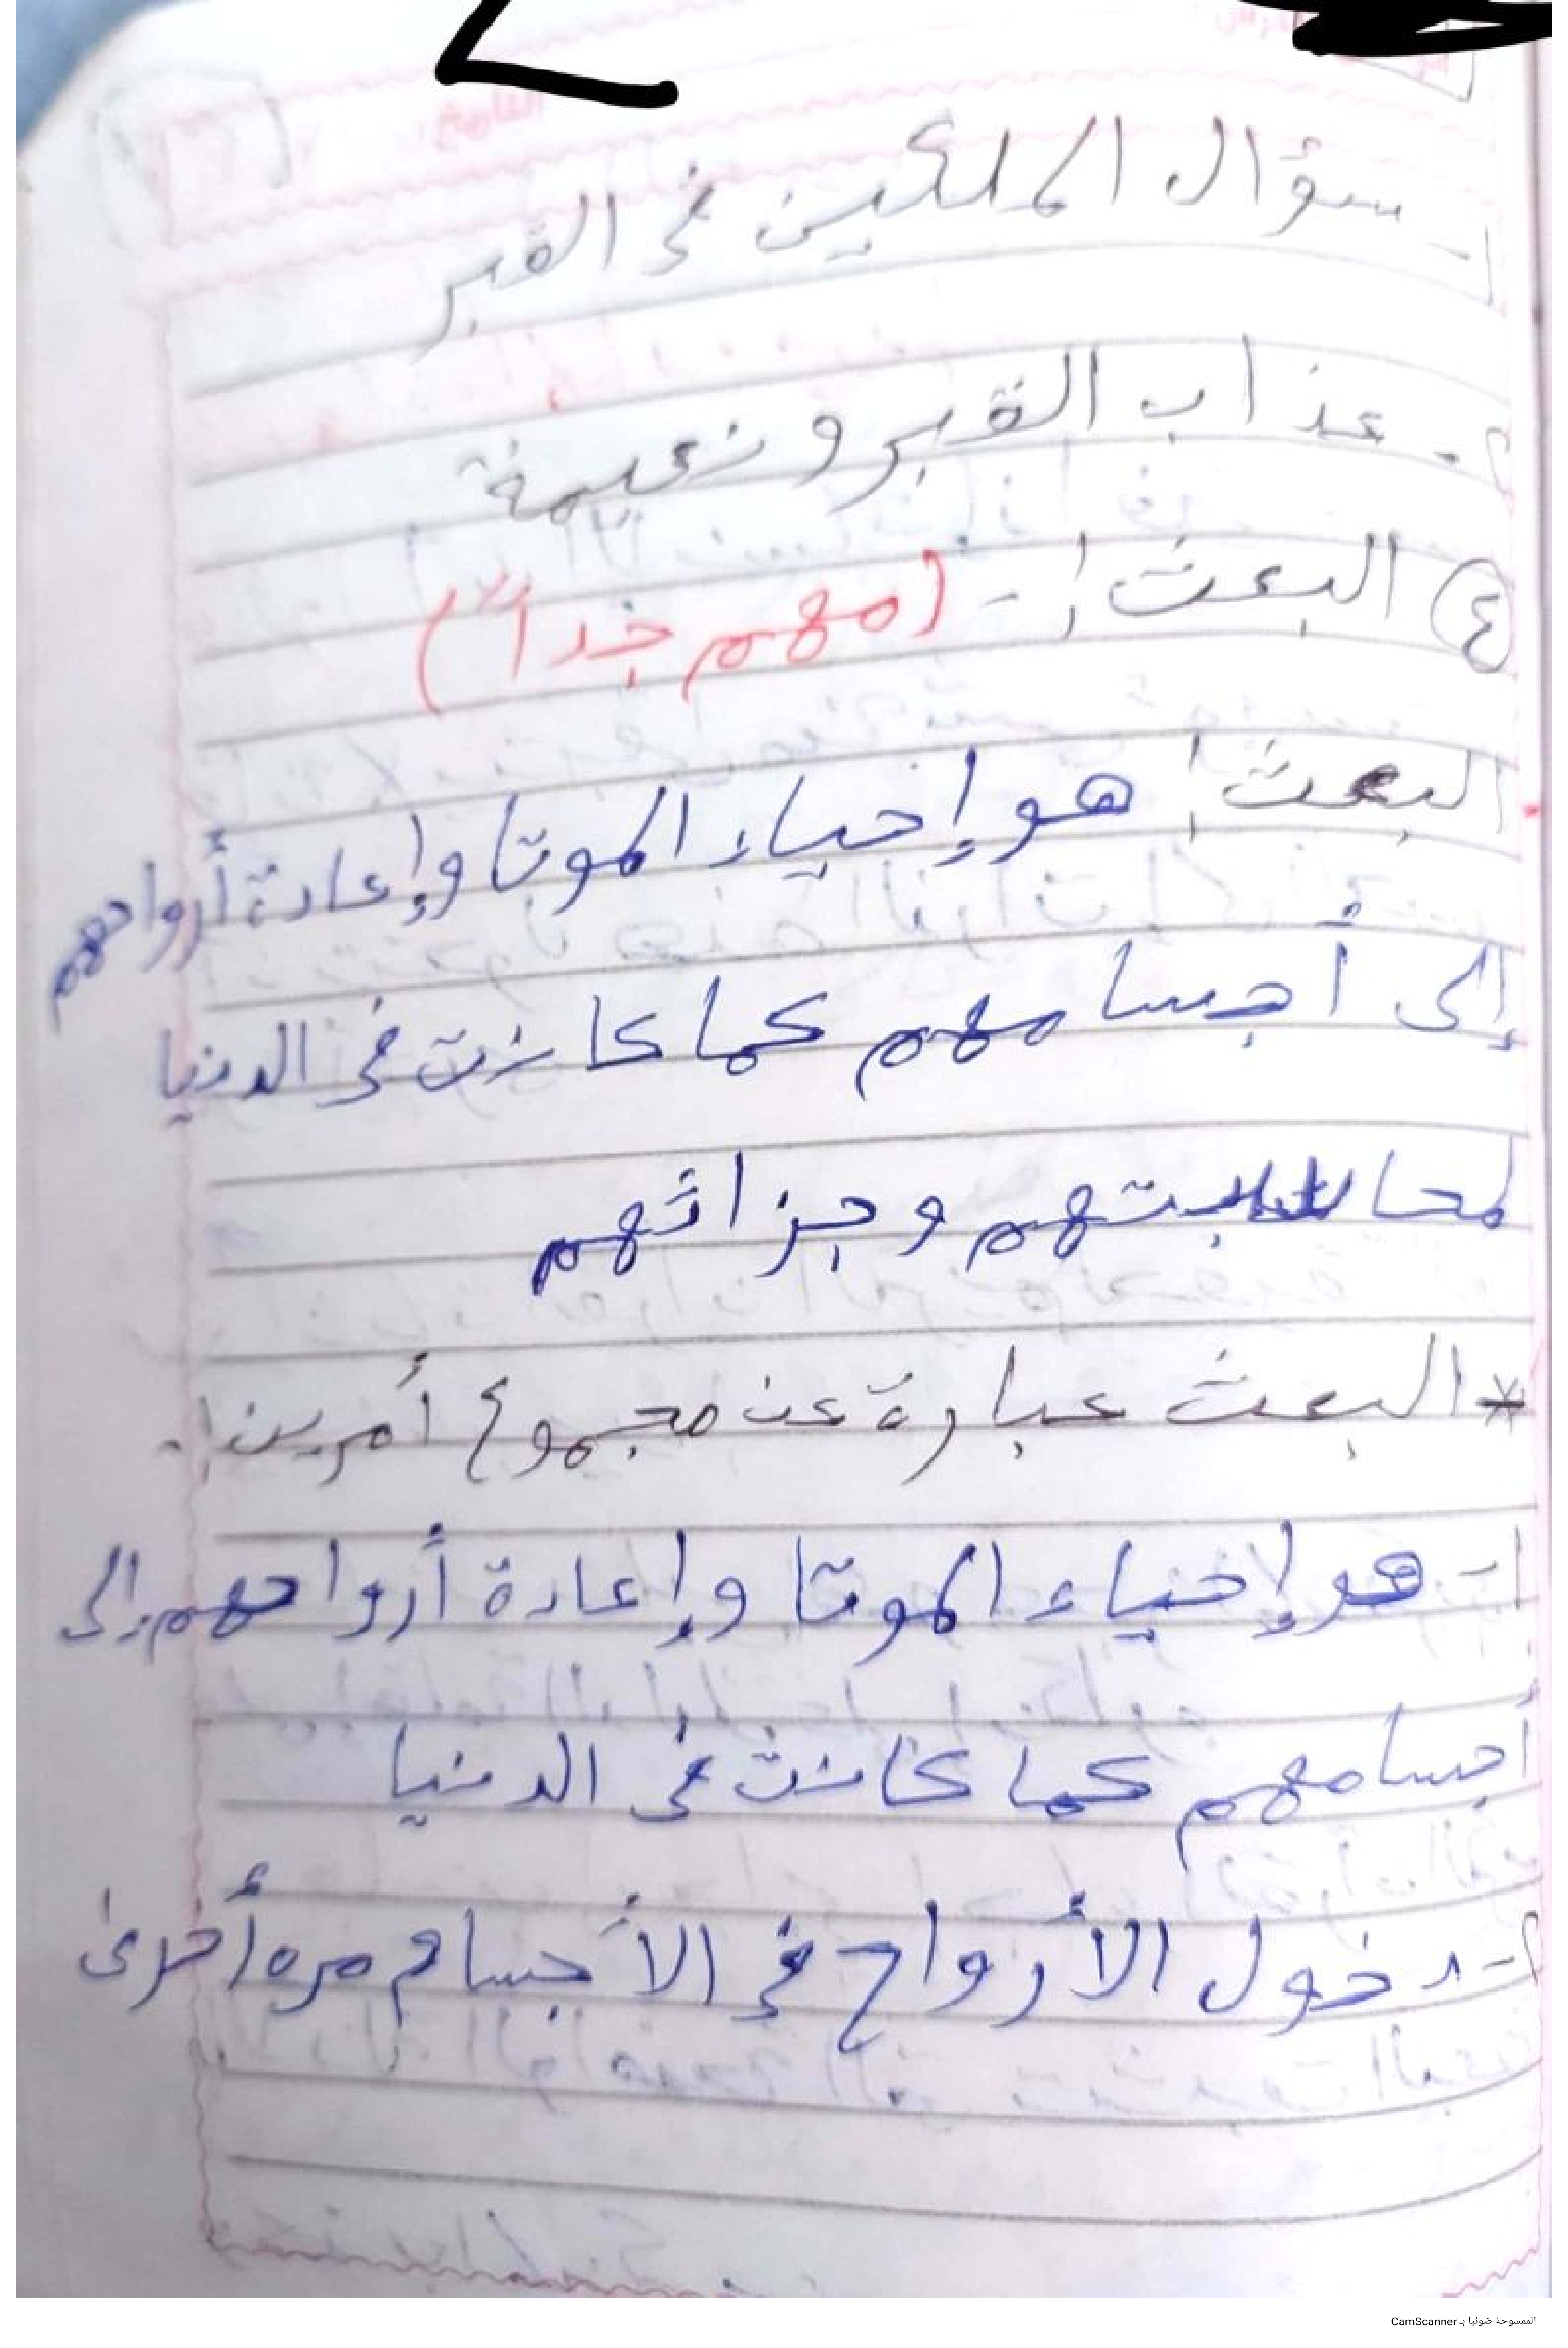 ١- سؤال الملكين في القبر
٢- عذاب القبر و نعيمة
٤) البعث :- (مهم جداً)
البعث: هو إحياء الموتا وإعادة أرواحهم
إلى أجسامهم كما كانت في الدنيا
لمحاسبتهم وجزائهم
* البعث عبارة عن مجموع أمرين:-
١- هو إحياء الموتا وإعادة أرواحهم إلى
أجسامهم كما كانت في الدنيا
٢- دخول الأرواح في الأجسام مره أخرى
الممسوحة ضوئيا بـ CamScanner